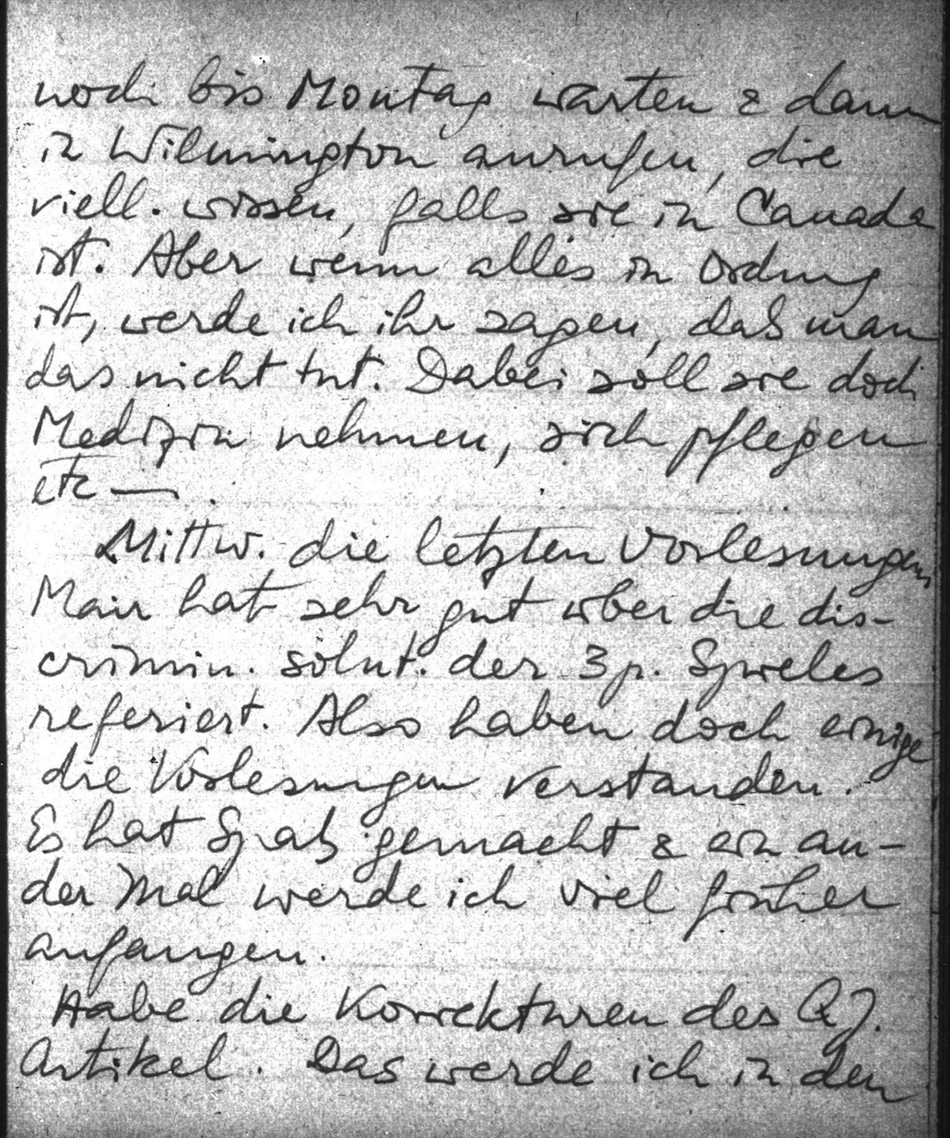 noch bis Montag warten & dann
in Wilmington anrufen, die
viell. wissen, falls sie in Canada
ist. Aber wenn alles in Ordnung
ist, werde ich ihr sagen, daß man
das nicht tut. Dabei soll sie doch
Medizin nehmen, sich pflegen
etc —.
Mittw. die letzten Vorlesungen,
Mair hat sehr gut über die dis-
crimin. solut. der 3 p. Spieles
referiert. Also haben doch einige
die Vorlesungen verstanden.
Es hat Spaß gemacht & ein an-
der Mal werde ich viel früher
anfangen.
Habe die Korrekturen des Q.J.
Artikel. Das werde ich in den